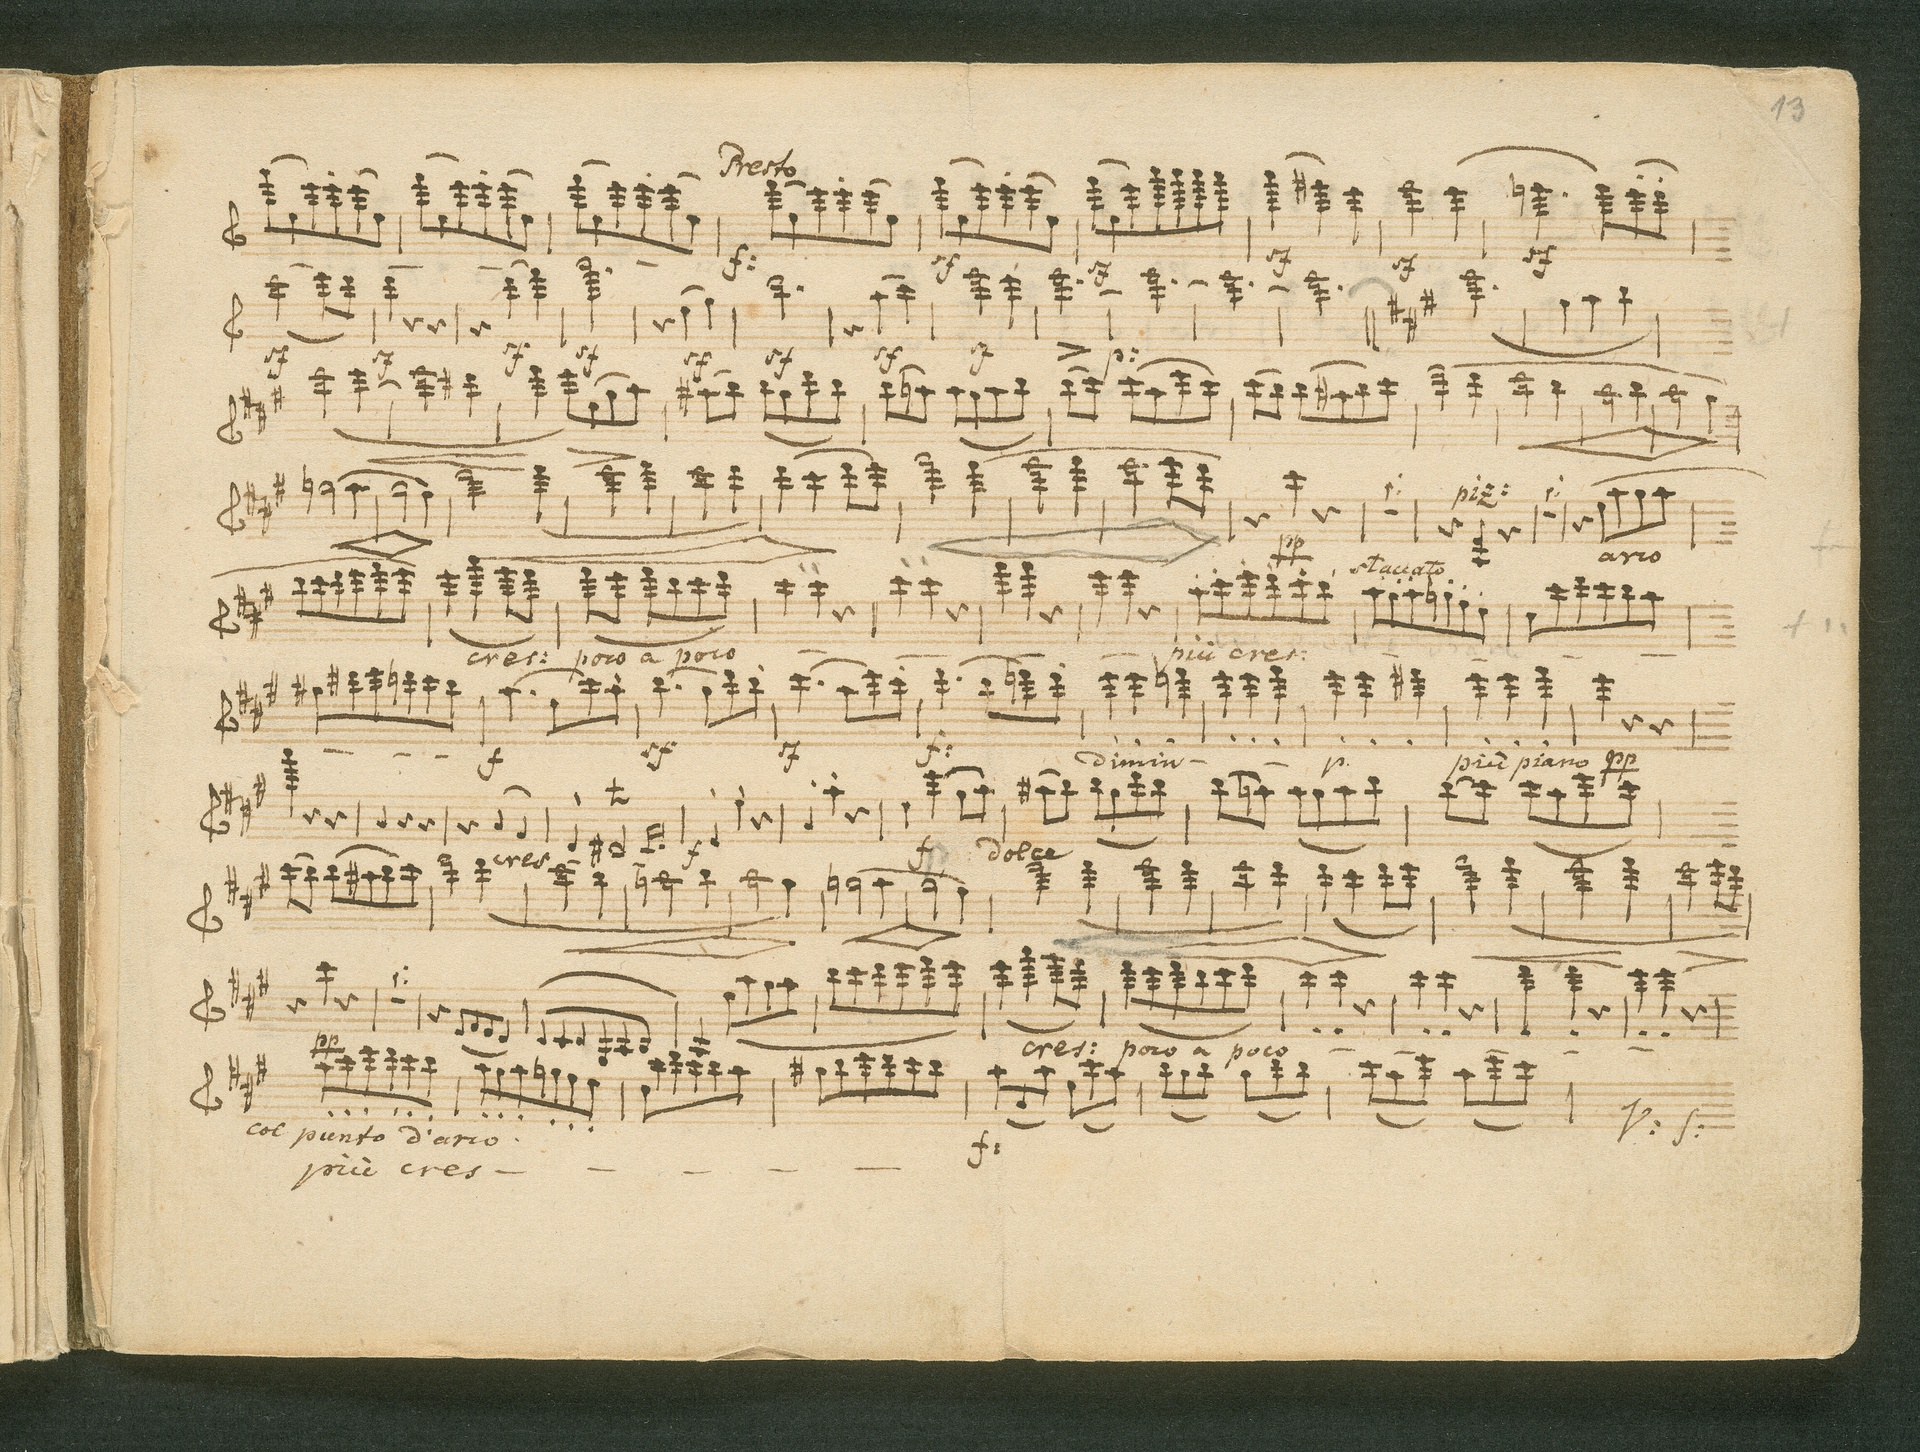 13
Presto
f: sf sf sf sf sf
sf sf sf sf sf sf sf sf > p:
piz:
pp arco
staccato
cres: poco a poco più cres:
f sf sf f: dimin - - p. più piano pp
cres f f dolce
pp cres: poco a poco
col punto d'arco.
f: V: S:
più cres -